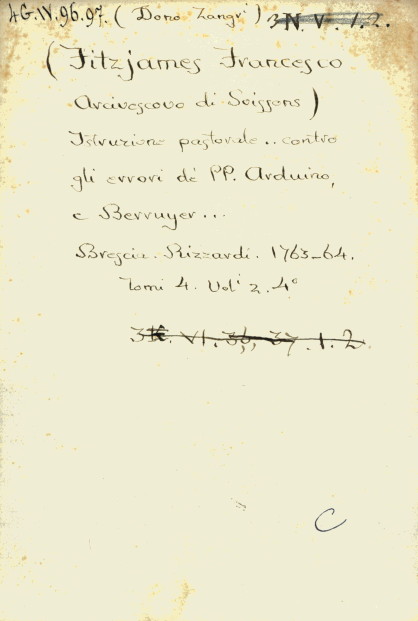 4G.IV.96.97. (Dono Zangri) 3N.V.1.2.
(Fitzjames Francesco
Arcivescovo di Soissons)
Istruzione pastorale.. contro
gli errori de' PP. Arduino,
e Berruyer...
Brescia. Rizzardi. 1763-64.
Tomi 4. Voli 2. 4°
VI. 36, 37. 1. 2.
C